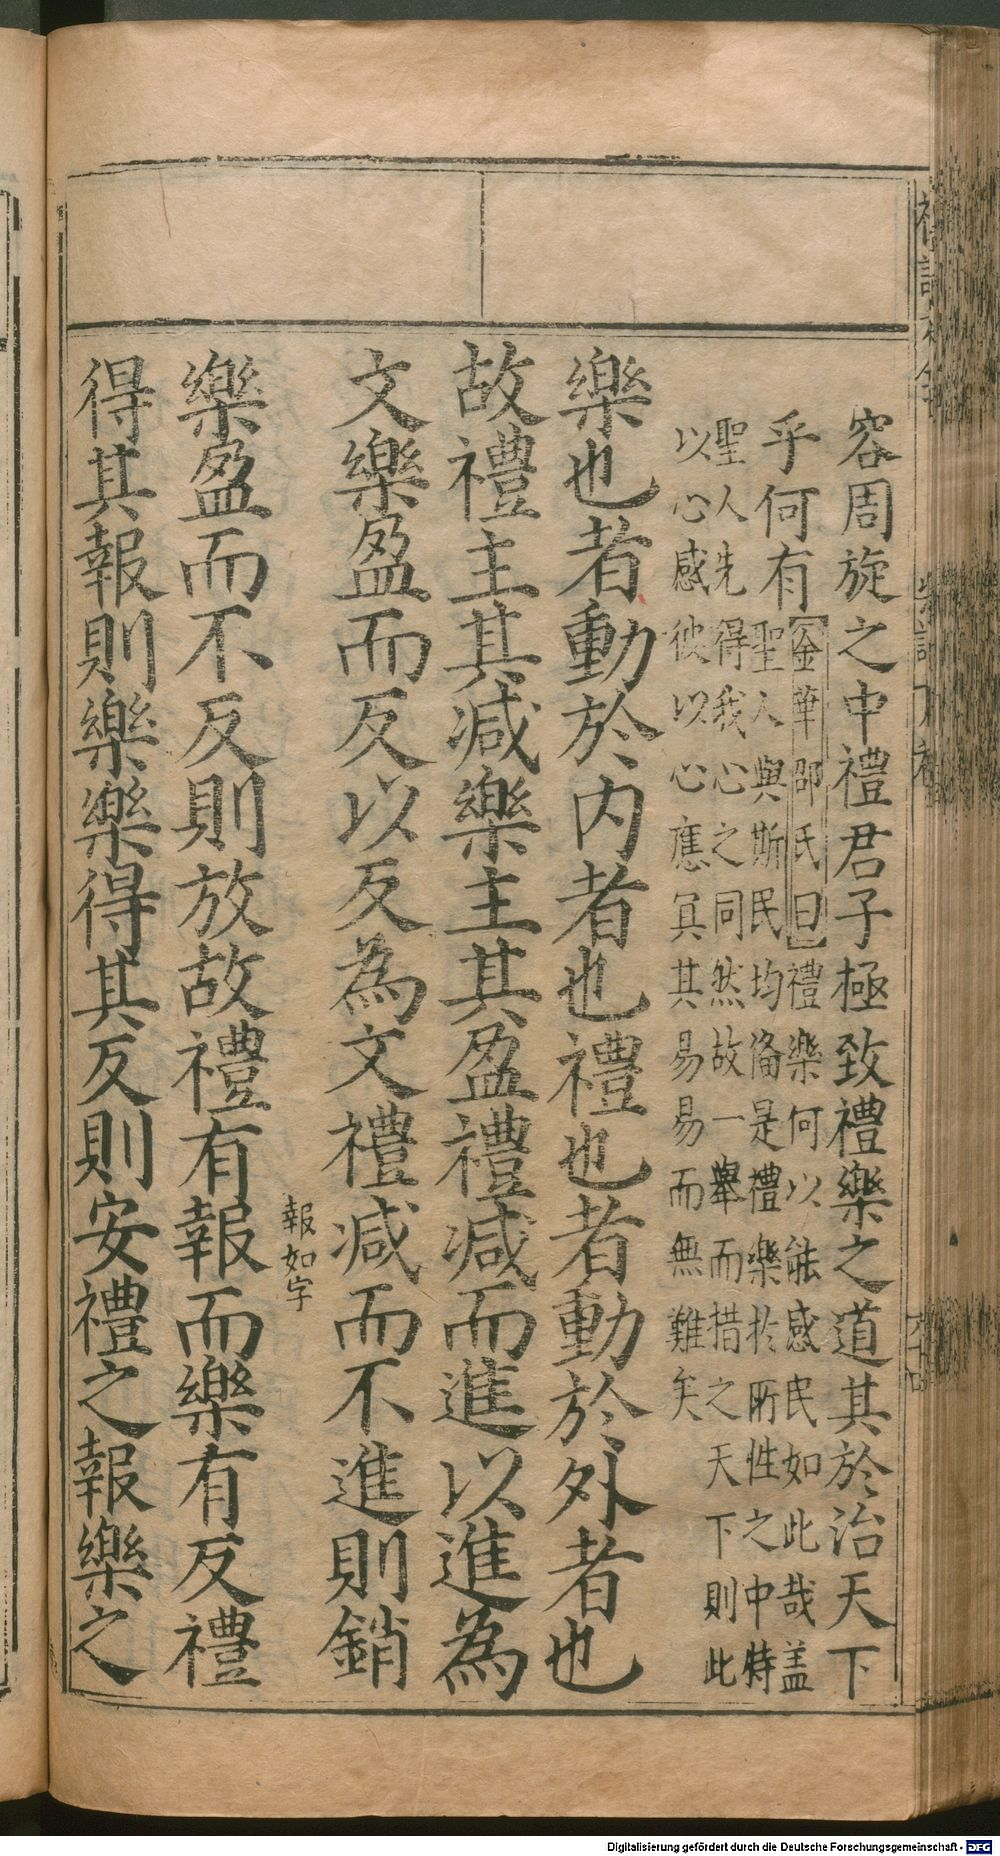 容周旋之中禮君子極致禮樂之道其於治天下
乎何有
金華邵氏曰禮樂何以能感民如此哉盖
聖人與斯民均俻是禮樂於所性之中特
聖人先得我心之同然故一舉而措之天下則此
以心感彼以心應冝其易易而無難矣
樂也者動於内者也禮也者動於外者也
故禮主其减樂主其盈禮减而進以進為
文樂盈而反以反為文禮减而不進則銷
報如字
樂盈而不反則放故禮有報而樂有反禮
得其報則樂樂得其反則安禮之報樂之
Digitalisierung gefördert durch die Deutsche Forschungsgemeinschaft - DFG